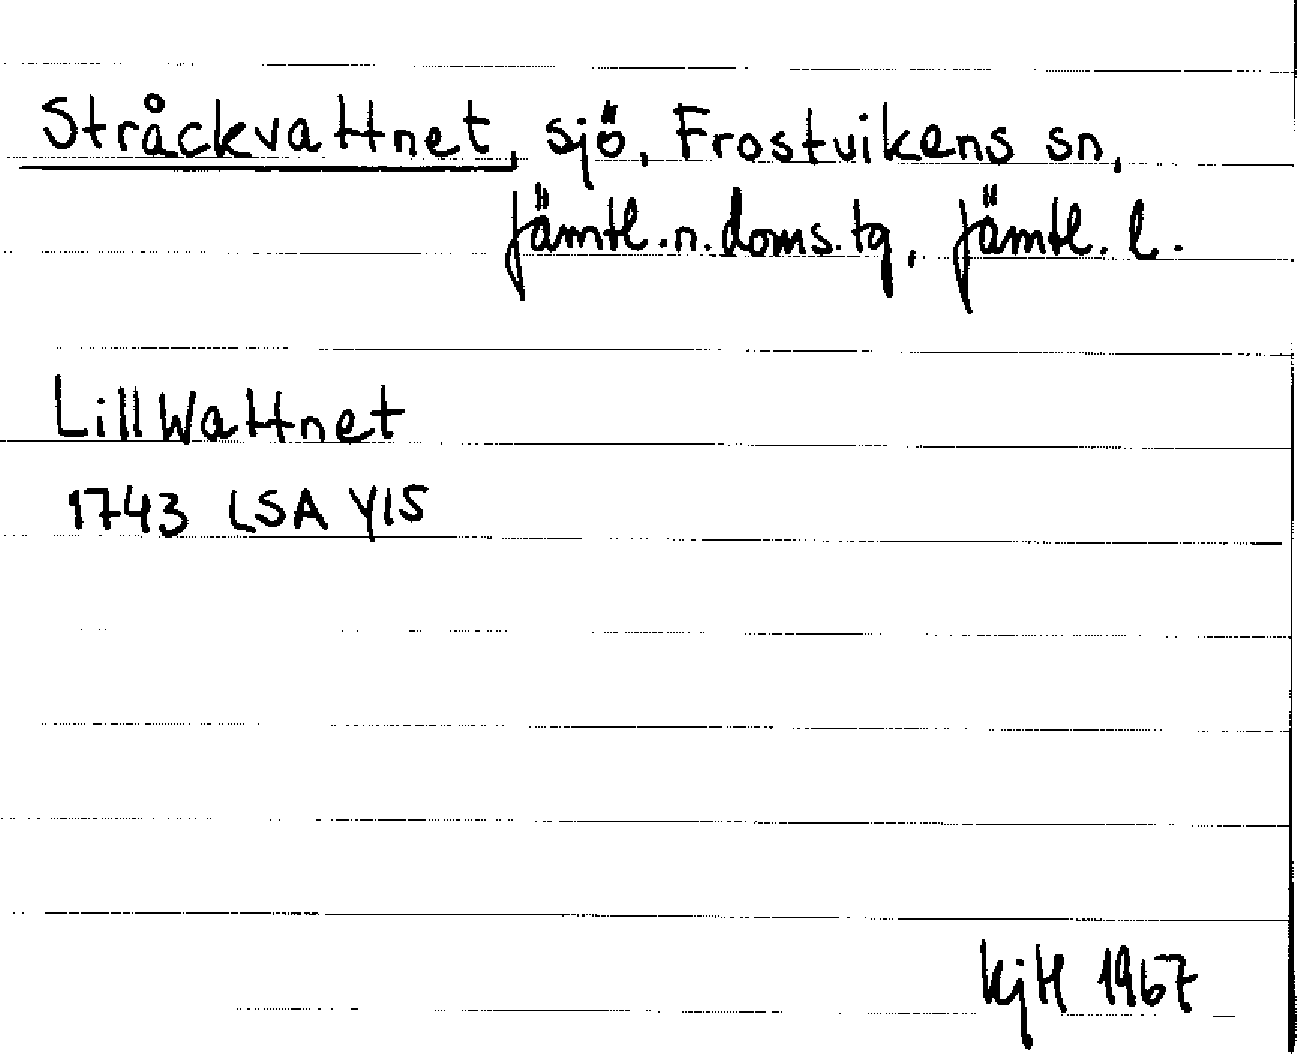 Stråckvattnet, sjö, Frostvikens sn,
Jämtl. n. doms. tg, Jämtl. l.
LillWattnet
1743 LSA Y15
KjH 1967